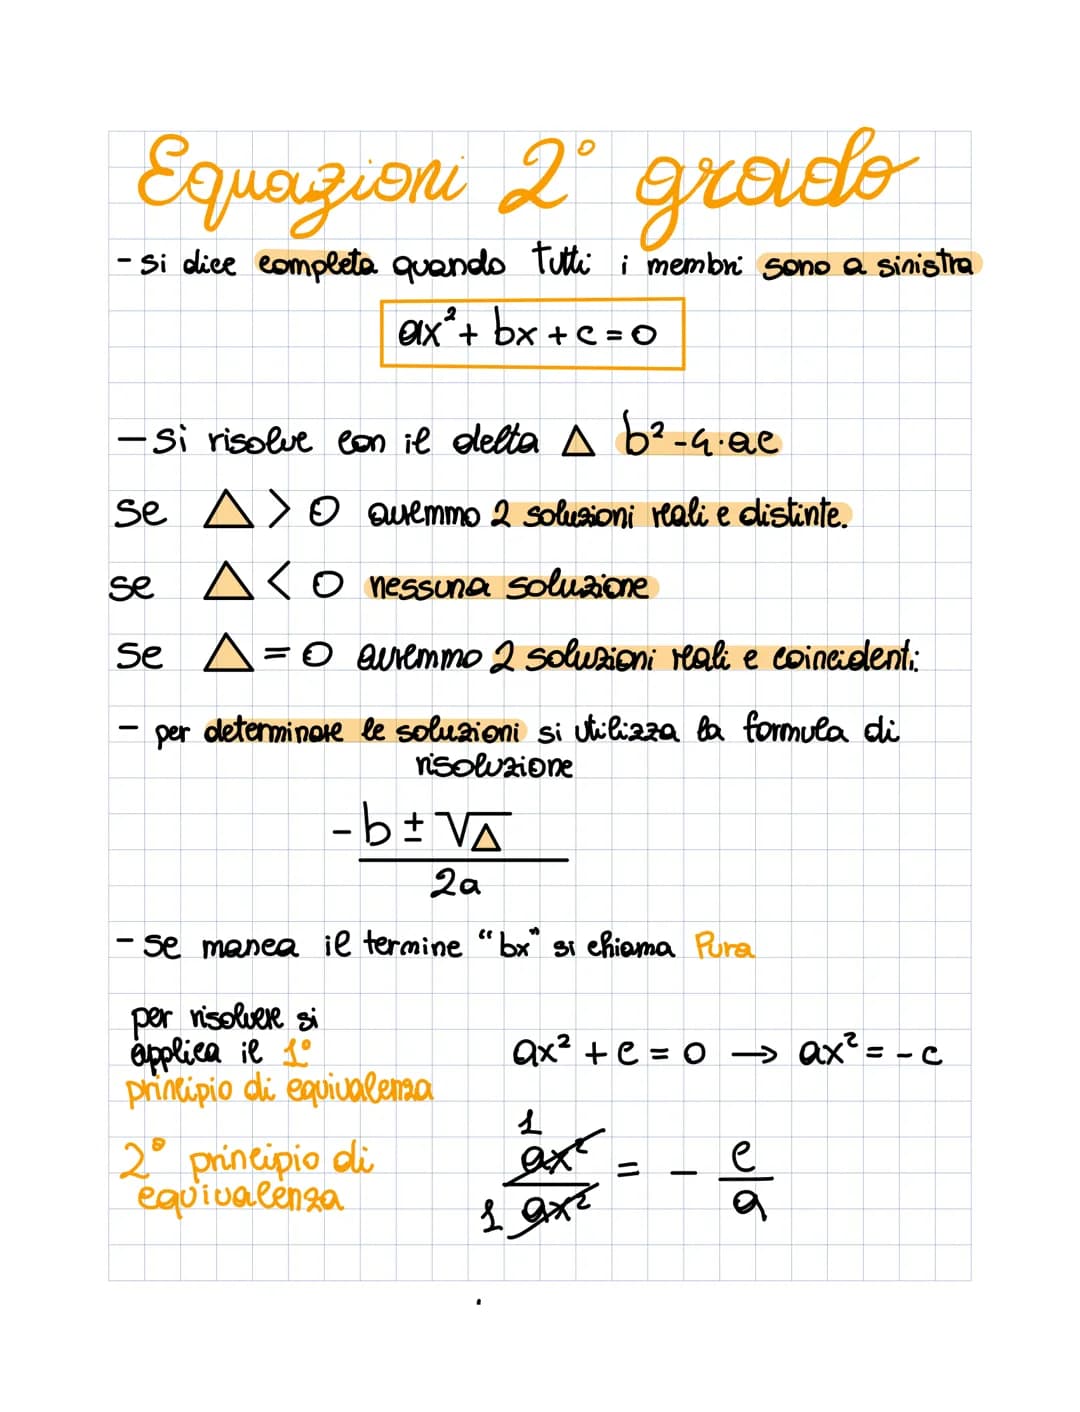 Equazioni 2° grado
- si dice completa quando tutti i membri sono a sinistra
ax² + bx + c = 0
- si risolve con il delta Δ b² - 4·ac
se Δ > 0 avremmo 2 soluzioni reali e distinte.
se Δ < 0 nessuna soluzione
se Δ = 0 avremmo 2 soluzioni reali e coincidenti.
- per determinare le soluzioni si utilizza la formula di
risoluzione
-b ± √Δ
2a
- se manca il termine "bx" si chiama Pura
per risolvere si
applica il 1°
principio di equivalenza
ax² + c = 0 → ax² = - c
2° principio di
equivalenza
1
ax² = - c
1 ax² a